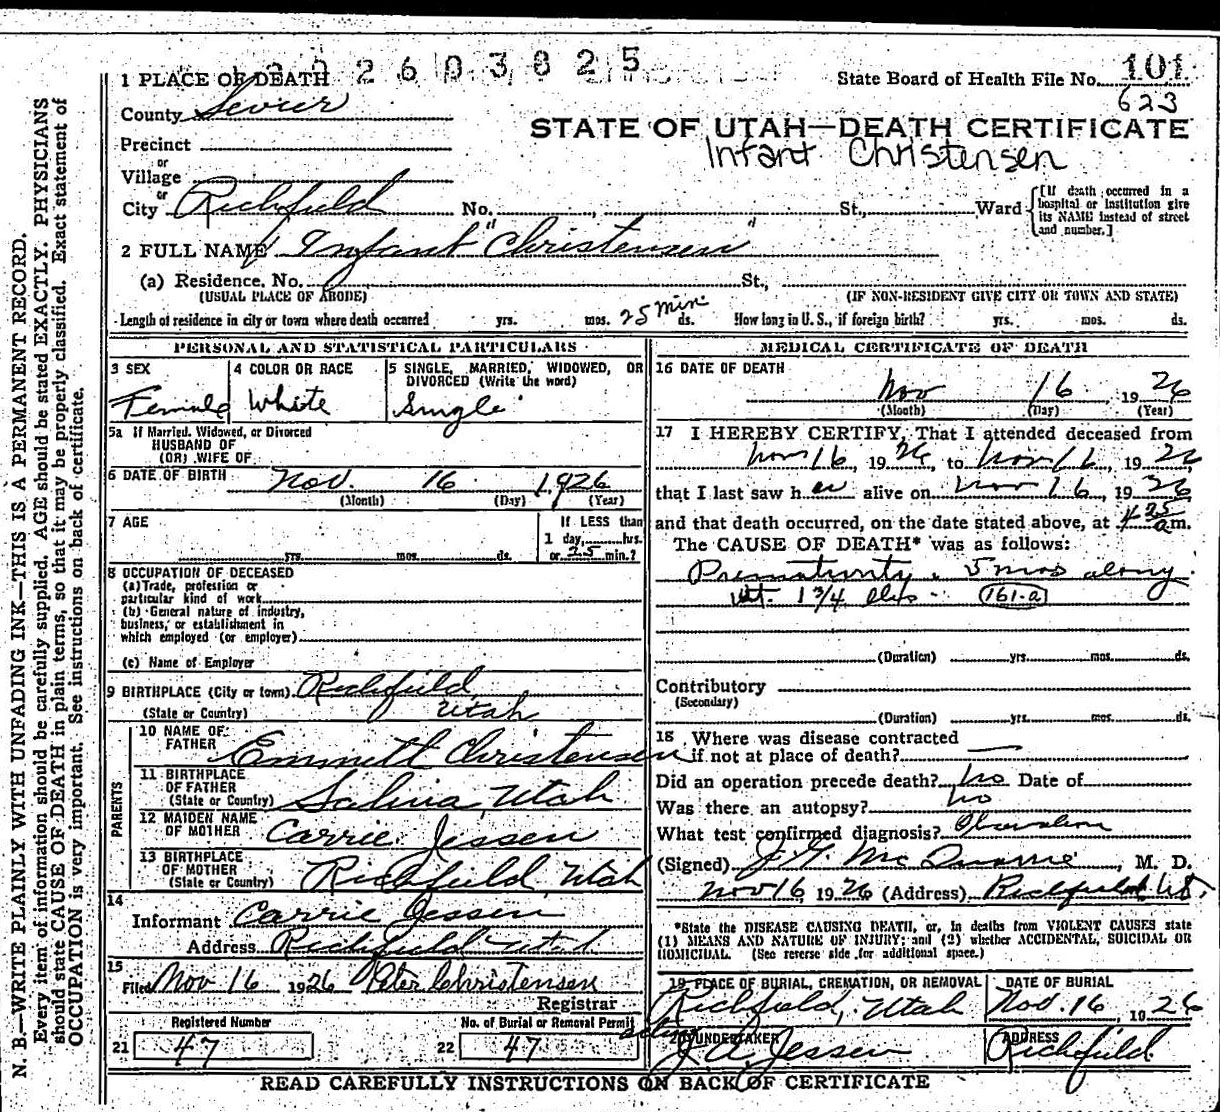 2603825
1 PLACE OF DEATH
State Board of Health File No. 101
623
County Sevier
STATE OF UTAH—DEATH CERTIFICATE
Infant Christensen
Precinct
or
Village
or
City Richfield No. , St., Ward
[If death occurred in a
hospital or institution give
its NAME instead of street
and number.]
2 FULL NAME Infant "Christensen"
(a) Residence. No. St.,
(USUAL PLACE OF ABODE) (IF NON-RESIDENT GIVE CITY OR TOWN AND STATE)
Length of residence in city or town where death occurred yrs. mos. 25 min ds. How long in U. S., if foreign birth? yrs. mos. ds.
PERSONAL AND STATISTICAL PARTICULARS
3 SEX
Female
4 COLOR OR RACE
White
5 SINGLE, MARRIED, WIDOWED, OR
DIVORCED (Write the word)
Single
5a If Married, Widowed, or Divorced
HUSBAND OF
(OR) WIFE OF
6 DATE OF BIRTH Nov. 16 1926
(Month) (Day) (Year)
7 AGE
yrs. mos. ds.
If LESS than
1 day, hrs.
or 25 min.?
8 OCCUPATION OF DECEASED
(a) Trade, profession or
particular kind of work
(b) General nature of industry,
business, or establishment in
which employed (or employer)
(c) Name of Employer
9 BIRTHPLACE (City or town) Richfield
(State or Country) Utah
PARENTS
10 NAME OF
FATHER Emmett Christensen
11 BIRTHPLACE
OF FATHER
(State or Country) Salina Utah
12 MAIDEN NAME
OF MOTHER Carrie Jessen
13 BIRTHPLACE
OF MOTHER
(State or Country) Richfield, Utah
14
Informant Carrie Jessen
Address Richfield Utah
15
Filed Nov 16 1926 Peter Christensen
Registrar
Registered Number
21 47
No. of Burial or Removal Permit
22 47
MEDICAL CERTIFICATE OF DEATH
16 DATE OF DEATH
Nov 16, 1926
(Month) (Day) (Year)
17 I HEREBY CERTIFY, That I attended deceased from
Nov 16, 1926, to Nov 16, 1926
that I last saw her alive on Nov 16, 1926
and that death occurred, on the date stated above, at 4 25 am.
The CAUSE OF DEATH* was as follows:
Prematurity. 5 mos along.
Wt. 1 3/4 lbs. 161-a
(Duration) yrs. mos. ds.
Contributory
(Secondary)
(Duration) yrs. mos. ds.
18 Where was disease contracted
if not at place of death?
Did an operation precede death? No Date of
Was there an autopsy? No
What test confirmed diagnosis? Observation
(Signed) J. G. McQuarrie, M. D.
Nov 16 1926 (Address) Richfield Ut.
*State the DISEASE CAUSING DEATH, or, in deaths from VIOLENT CAUSES state
(1) MEANS AND NATURE OF INJURY; and (2) whether ACCIDENTAL, SUICIDAL OR
HOMICIDAL. (See reverse side for additional space.)
19 PLACE OF BURIAL, CREMATION, OR REMOVAL
Richfield, Utah
DATE OF BURIAL
Nov. 16, 1926
20 UNDERTAKER
acting J. A. Jessen
ADDRESS
Richfield
READ CAREFULLY INSTRUCTIONS ON BACK OF CERTIFICATE
N. B.—WRITE PLAINLY WITH UNFADING INK—THIS IS A PERMANENT RECORD.
Every item of information should be carefully supplied. AGE should be stated EXACTLY. PHYSICIANS
should state CAUSE OF DEATH in plain terms, so that it may be properly classified. Exact statement of
OCCUPATION is very important. See instructions on back of certificate.